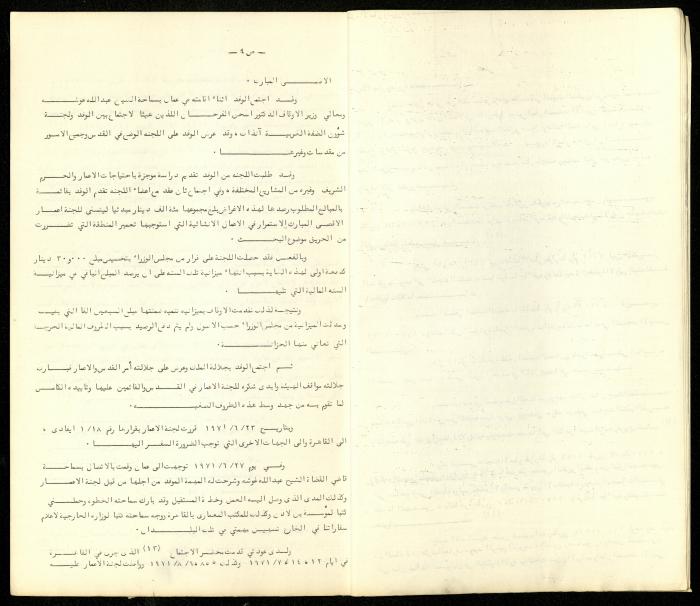 — ص ٩ —
الاقصى المبارك .
وقد اجتمع الوفد اثناء اقامته في عمان بسماحة الشيخ عبدالله غوشه
ومعالي وزير الاوقاف الدكتور اسحق الفرحان اللذين هيئا لاجتماع بين الوفد ولجنة
شؤون الضفة الغربية آنذاك وقد عرض الوفد على اللجنه الوضع في القدس وجميع الامور
من مقدسات وغيرها .
وقد طلبت اللجنه من الوفد تقديم دراسة موجزة باحتياجات الاعمار والحرم
الشريف وغيره من المشاريع المختلفة ، وفي اجتماع ثان عقد مع اعضاء اللجنه تقدم الوفد بقائمة
بالمبالغ المطلوب رصدها لهذه الاغراض بلغ مجموعها مئة الف دينار مبدئيا ليتسنى للجنة اعمار
الاقصى المبارك الاستمرار في الاعمال الانشائية التي استوجبها تعمير المنطقة التي تضررت
من الحريق موضوع البحث .
وبالفعل فقد حصلت اللجنة على قرار من مجلس الوزراء بتخصيص مبلغ ٣٠،٠٠٠ دينار
كدفعة اولى لهذه الغاية بسبب انتهاء ميزانية تلك السنه على ان يرصد المبلغ الباقي في ميزانية
السنه المالية التي تليها .
ونتيجة لذلك تقدمت الاوقاف بميزانيه تنميه ضمنتها مبلغ السبعين الفا التي بقيت
وصدقت الميزانية من مجلس الوزراء حسب الاصول ولم يتم دفع الرصيد بسبب الظروف المالية الحرجة
التي تعاني منها الخزانة .
ثم اجتمع الوفد بجلالة الملك وعرض على جلالته أمر القدس والاعمار فبارك
جلالته مواقف الهيئه وابدى شكره للجنة الاعمار في القدس والقائمين عليها وتاييده الكامل
لما تقوم به من جهد وسط هذه الظروف الصعبة .
وبتاريخ ١٩٧١/٦/٢٣ قررت لجنة الاعمار بقرارها رقم ١/١٨ ايفادى ،
الى القاهرة والى الجهات الاخرى التي توجب الضرورة السفر اليها .
وفي يوم ١٩٧١/٦/٢٧ توجهت الى عمان وقمت بالاتصال بسماحة
قاضي القضاة الشيخ عبدالله غوشه وشرحت له المهمة الموفد من اجلها من قبل لجنة الاعمار
وكذلك المدى الذى وصل اليه العمل وخطة المستقبل وقد بارك سماحته الخطوة وحملني
كتبا لمؤسسة بن لادن وكذلك للمكتب المعمارى بالقاهرة ووجه سماحته كتبا لوزارة الخارجية لاعلام
سفاراتنا في الخارج تسهيل مهمتي في تلك البلدان .
ولدى عودتي قدمت محضر الاجتماع (١٣) الذى جرى في القاهرة
في ايام ١٢ ، ١٤ ، ١٩٧١/٧ وكذلك ١٩٧١/٨/ ووافقت لجنة الاعمار عليه